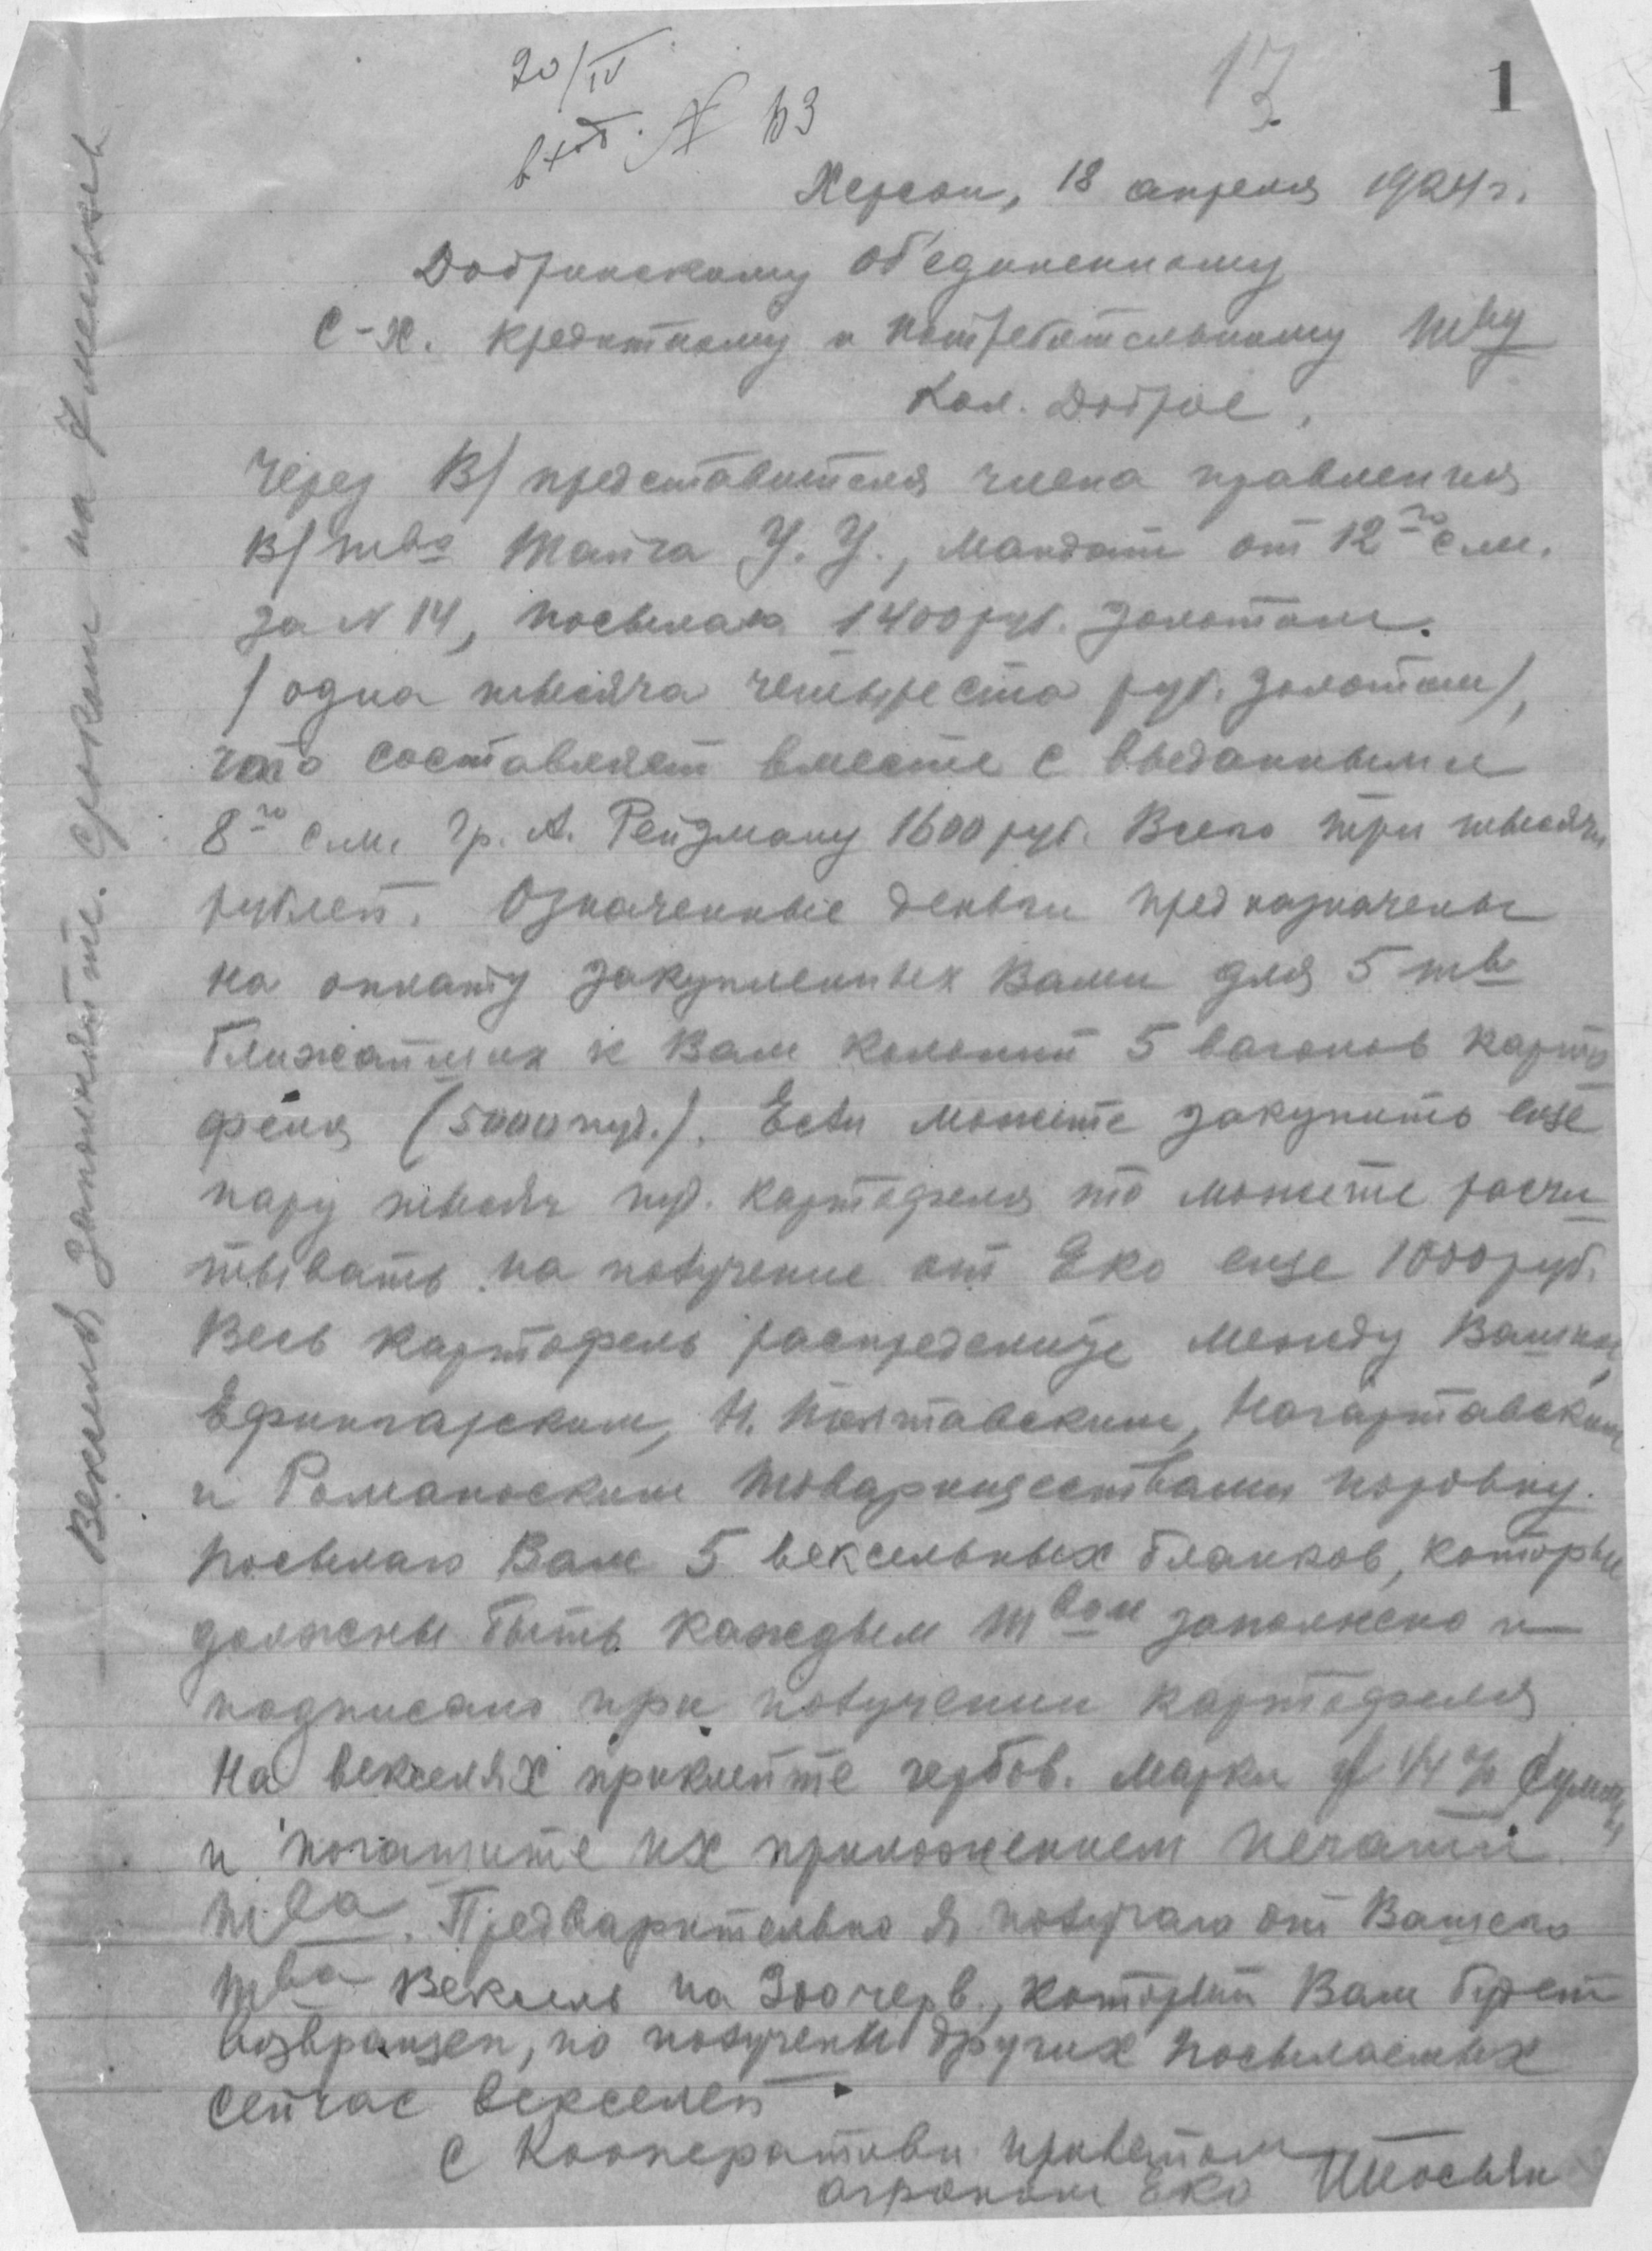 20/IV
вход. № 63
17
1
Херсон, 18 апреля 1924 г.
Добринскому об'единенному
С-Х. кредитному и потребительному т<sup>ву</sup>
Кол. Доброе,
Через В/ представителя члена правления
В/ т<sup>ва</sup> У. У., мандат от 12<sup>го</sup> с.м.
за N 14, посылаю 1400 руб. золотом.
/одна тысяча четыреста руб. золотом/,
что составляет вместе с выданными
8<sup>го</sup> с.м. гр. А. Рейзману 1600 руб. Всего три тысячи
рублей. Означенные деньги предназначены
на оплату закупленных Вами для 5 т<sup>в</sup>
ближайших к Вам колоний 5 вагонов карто
феля (5000 пуд.). Если можете закупить еще
пару тысяч пуд. картофеля то можете расчи
тывать на получение от Еко еще 1000 руб.
Весь картофель распределите между Вашим,
Ефингарским, Н. Полтавским, Нагартавским
и Романовским товариществами поровну.
Посылаю Вам 5 вексельных бланков, которые
должны быть каждым т<sup>вом</sup> заполнено и
подписано при получении картофеля
На векселях приклейте гербов. марки 1/4 % суммы
и погашите их приложением печати
т<sup>ва</sup>. Предварительно я получаю от Вашего
т<sup>ва</sup> Вексель на 300 черв., который Вам будет
возвращен, по получении других посылаемых
сейчас векселей.
С Кооперативн. приветом
агроном Еко
Вексель заполняйте. Сроком на